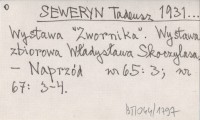 SEWERYN Tadeusz 1931...
Wystawa "Zwornika". Wystawa
zbiorowa Władysława Skoczylasa.
- Naprzód nr 65: 3; nr
67: 3-4.